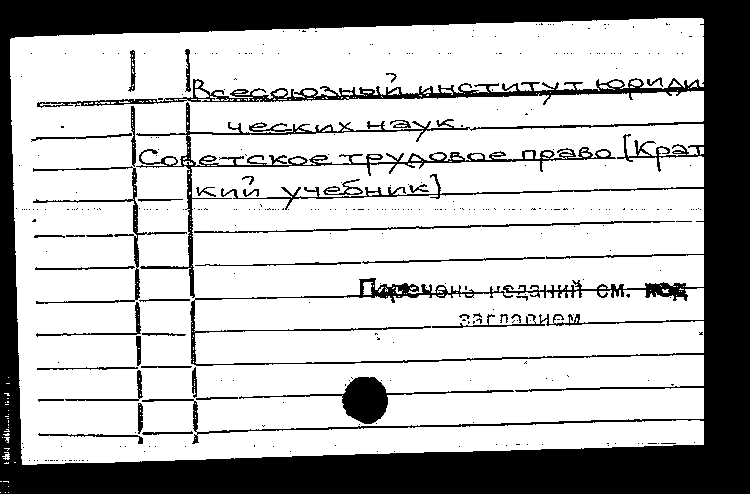 Всесоюзный институт юриди-
ческих наук.
Советское трудовое право [Крат
кий учебник]
Перечень изданий см. под
заглавием